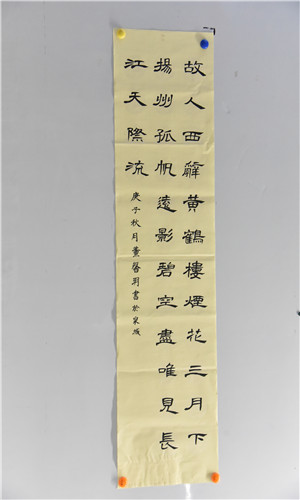 故人西辭黃鶴樓煙花三月下
揚州孤帆遠影碧空盡唯見長
江天際流
庚子秋月董啓剛書於泉城